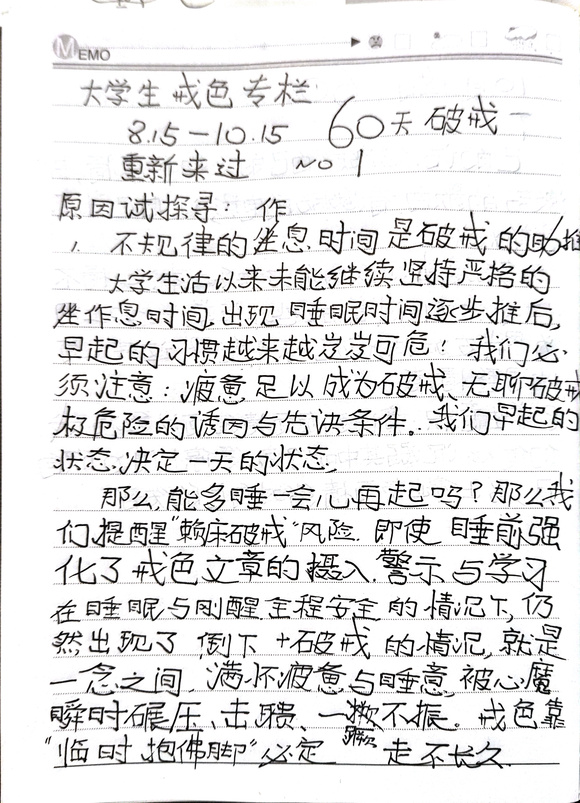 MEMO
大学生戒色专栏
8.15—10.15 60天破戒
重新来过 NO 1
原因试探寻: 作
1. 不规律的坐息时间是破戒的助推
大学生活以来未能继续坚持严格的
坐作息时间,出现睡眠时间逐步推后,
早起的习惯越来越岌岌可危!我们必
须注意:疲惫足以成为破戒、无聊破戒
极危险的诱因与先决条件。我们早起的
状态.决定一天的状态,
那么,能多睡一会儿再起吗?那么我
们,提醒“赖床破戒”风险.即使睡前强
化了戒色文章的摄入.警示与学习
在睡眠与刚醒全程安全的情况下,仍
然出现了倒下+破戒的情况,就是
一念之间,满怀疲惫与睡意,被心魔
瞬时碾压、击溃、一蹶不振。戒色靠
“临时抱佛脚”必定 蹶 走不长久.